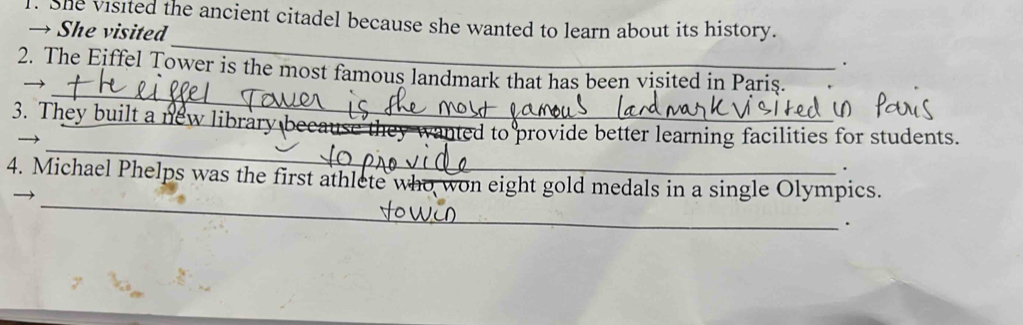 1. She visited the ancient citadel because she wanted to learn about its history.
→ She visited
2. The Eiffel Tower is the most famous landmark that has been visited in Paris.
→ the eiffel Tower is the most famous landmark visited in Paris
3. They built a new library because they wanted to provide better learning facilities for students.
→ to provide
4. Michael Phelps was the first athlete who won eight gold medals in a single Olympics.
→ to win